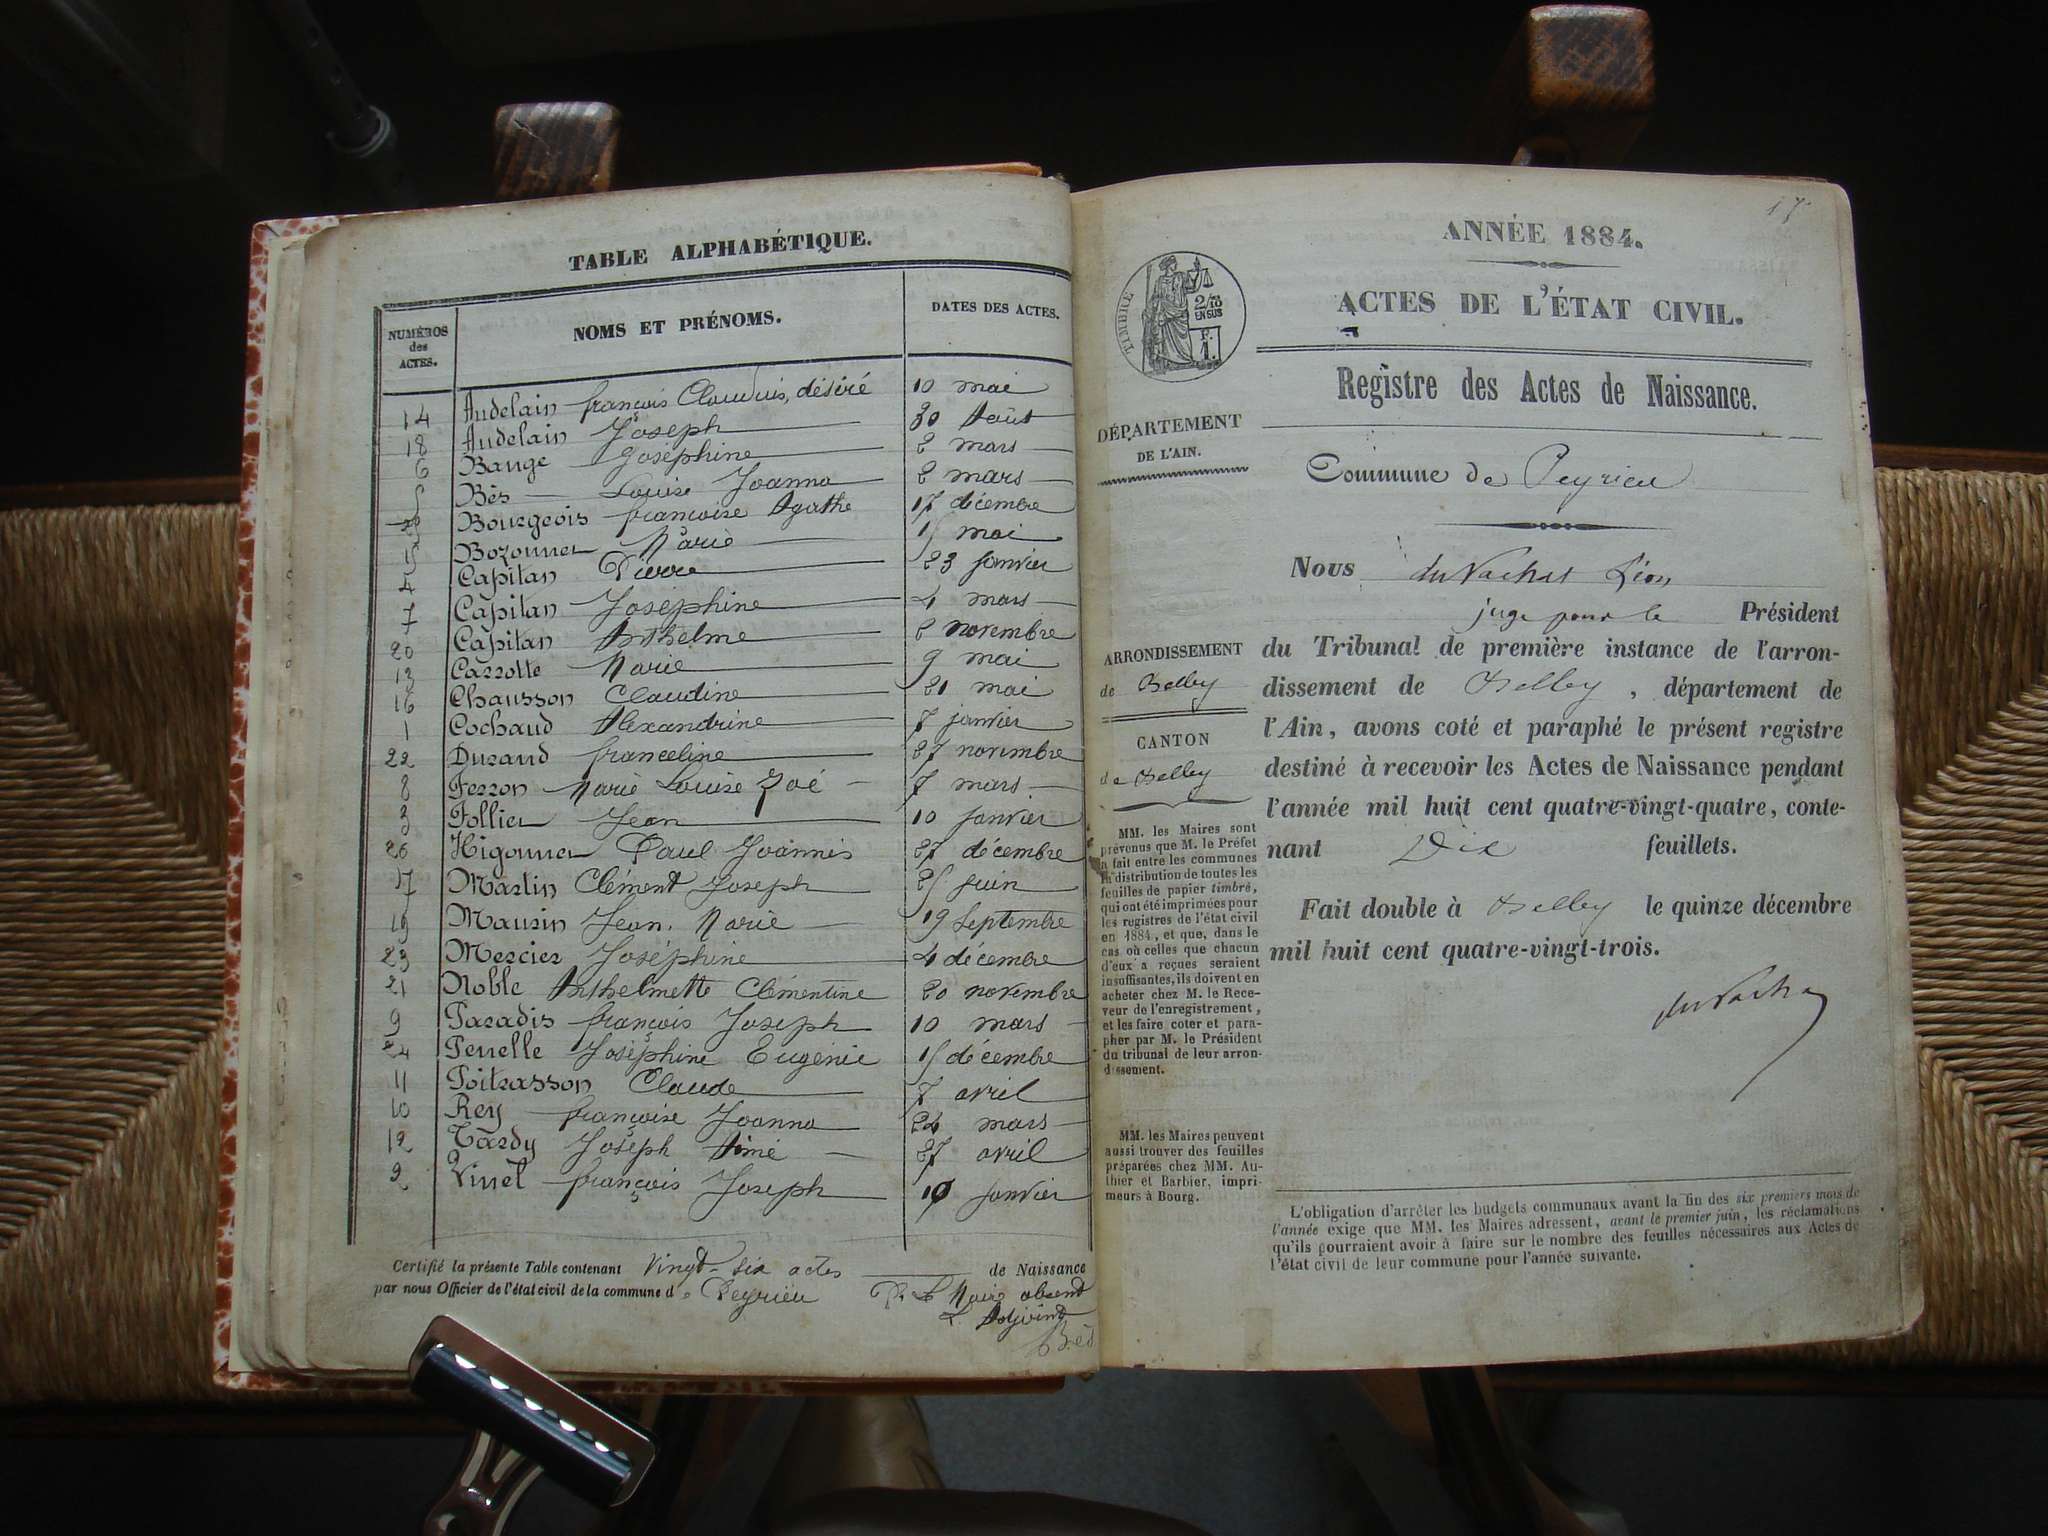 TABLE ALPHABÉTIQUE.
NUMÉROS des ACTES. NOMS ET PRÉNOMS. DATES DES ACTES.
14 Audelain françois Claudius, désiré 10 mai
18 Audelain Joseph 30 Août
6 Bauge Joséphine 2 mars
5 Bès Louise Joanna 2 mars
Bourgeois françoise Agathe 17 décembre
15 Bozonnet Marie 15 mai
4 Capitan Pierre 23 Janvier
7 Capitan Joséphine 4 mars
20 Capitan Anthelme 2 novembre
13 Carrotte Marie 9 mai
16 Chausson Claudine 21 mai
1 Cochaud Alexandrine 7 janvier
22 Durand franceline 27 novembre
8 Ferron Marie Louise Zoé 7 mars
3 Follier Jean 10 Janvier
26 Higonnet Paul Joannès 27 décembre
17 Martin Clément Joseph 25 Juin
19 Maurin Jean, Marie 19 Septembre
23 Mercier Joséphine 4 décembre
21 Noble Anthelmette Clémentine 20 novembre
9 Paradis françois Joseph 10 mars
24 Penelle Joséphine Eugénie 15 décembre
11 Poitrasson Claude 7 avril
10 Rey françoise Joanna 24 mars
12 Tardy Joseph Aimé 27 avril
2 Vinet françois Joseph 10 Janvier
Certifié la présente Table contenant Vingt-six actes de Naissance
par nous Officier de l'état civil de la commune de Peyrieu
Pr Le Maire absent
L'Adjoint
Bès
17
ANNÉE 1884.
TIMBRE
2/10 EN SUS
F. 1.
ACTES DE L'ÉTAT CIVIL.
Registre des Actes de Naissance.
DÉPARTEMENT
DE L'AIN.
Commune de Peyrieu
Nous du Vachat Léon
juge pour le Président
du Tribunal de première instance de l'arron-
dissement de Belley, département de
l'Ain, avons coté et paraphé le présent registre
destiné à recevoir les Actes de Naissance pendant
l'année mil huit cent quatre-vingt-quatre, conte-
nant Dix feuillets.
Fait double à Belley le quinze décembre
mil huit cent quatre-vingt-trois.
du Vachat
ARRONDISSEMENT
de Belley
CANTON
de Belley
MM. les Maires sont
prévenus que M. le Préfet
a fait entre les communes
la distribution de toutes les
feuilles de papier timbré,
qui ont été imprimées pour
les registres de l'état civil
en 1884, et que, dans le
cas où celles que chacun
d'eux a reçues seraient
insuffisantes, ils doivent en
acheter chez M. le Rece-
veur de l'enregistrement,
et les faire coter et para-
pher par M. le Président
du tribunal de leur arron-
dissement.
MM. les Maires peuvent
aussi trouver des feuilles
préparées chez MM. Au-
thier et Barbier, impri-
meurs à Bourg.
L'obligation d'arrêter les budgets communaux avant la fin des six premiers mois de
l'année exige que MM. les Maires adressent, avant le premier juin, les réclamations
qu'ils pourraient avoir à faire sur le nombre des feuilles nécessaires aux Actes de
l'état civil de leur commune pour l'année suivante.